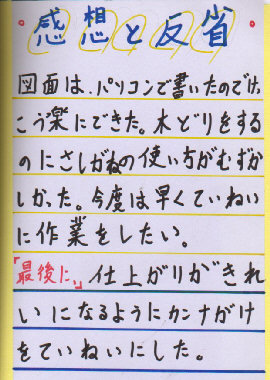 感想と反省
図面は、パソコンで書いたのでけっ
こう楽にできた。木どりをする
のにさしがねの使い方がむずか
しかった。今度は早くていねい
に作業をしたい。
「最後に、」仕上がりがきれ
いになるようにカンナがけ
をていねいにした。